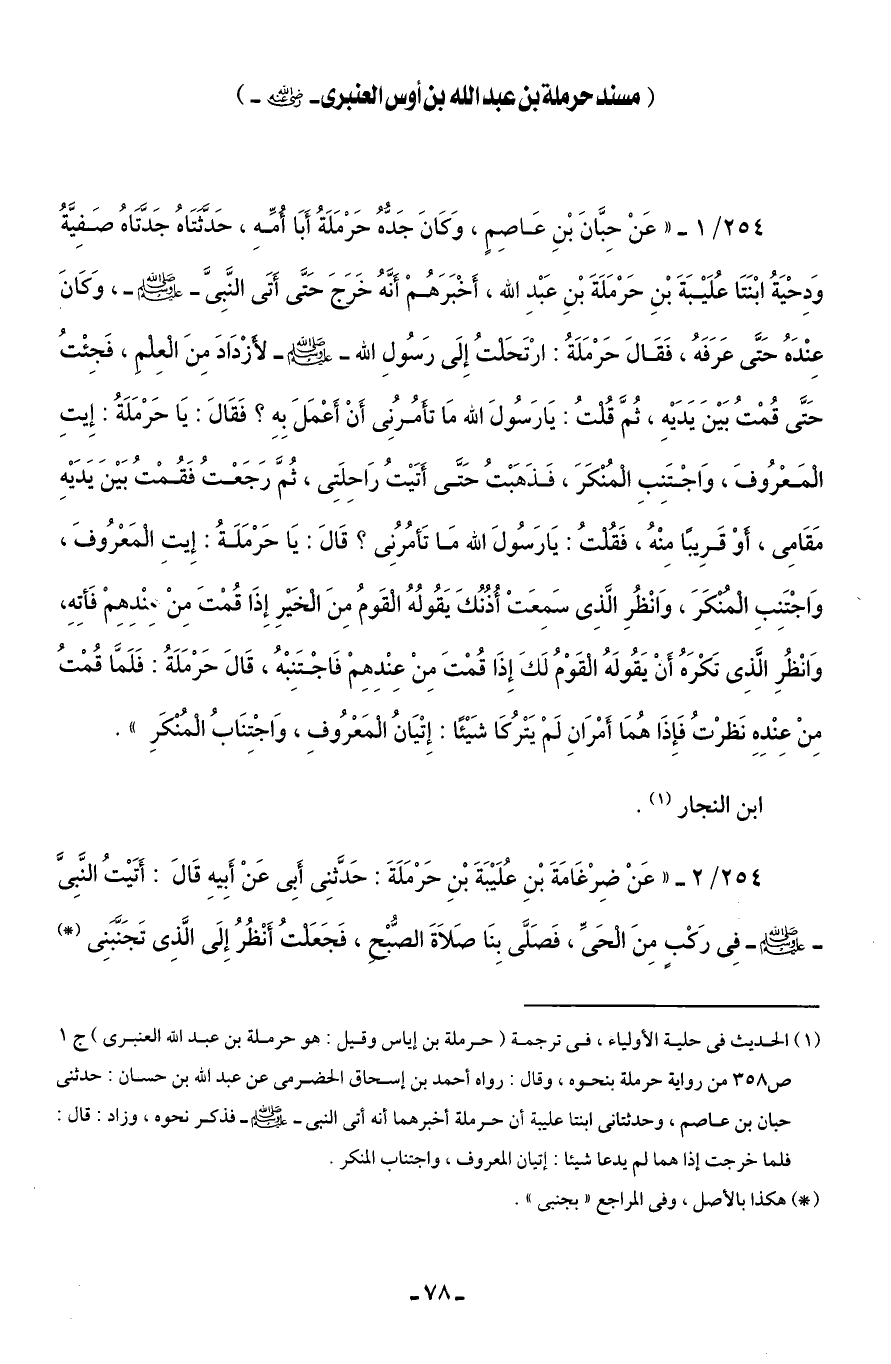 ( مسند حرملة بن عبد الله بن أوس العنبرى - رضي الله عنه - )
٢٥٤/ ١ - « عَنْ حِبَّانَ بْنِ عَاصِمٍ ، وَكَانَ جَدُّهُ حَرْمَلَةُ أَبَا أُمِّهِ ، حَدَّثَتَاهُ جَدَّتَاهُ صَفِيَّةُ
وَدِحْيَةُ ابْنَتَا عُلَيْبَةَ بْنِ حَرْمَلَةَ بْنِ عَبْدِ الله ، أَخْبَرَهُمْ أَنَّهُ خَرَجَ حَتَّى أَتَى النَّبِىَّ - ﷺ - ، وَكَانَ
عِنْدَهُ حَتَّى عَرَفَهُ ، فَقَالَ حَرْمَلَةُ : ارْتَحَلْتُ إِلَى رَسُولِ الله - ﷺ - لأَزْدَادَ مِنَ الْعِلْمِ ، فَجِئْتُ
حَتَّى قُمْتُ بَيْنَ يَدَيْهِ ، ثُمَّ قُلْتُ : يَارَسُولَ الله مَا تَأمُرُنِى أَنْ أَعْمَلَ بِهِ ؟ فَقَالَ : يَا حَرْمَلَةُ : إيتِ
الْمَعْرُوفَ ، وَاجْتَنِبِ الْمُنْكَرَ ، فَذَهَبْتُ حَتَّى أَتَيْتُ رَاحِلَتِى ، ثُمَّ رَجَعْتُ فَقُمْتُ بَيْنَ يَدَيْهِ
مَقَامِى ، أَوْ قَرِيبًا مِنْهُ ، فَقُلْتُ : يَارَسُولَ الله مَا تَأمُرُنِى ؟ قَالَ : يَا حَرْمَلَةُ : إيتِ الْمَعْرُوفَ ،
وَاجْتَنِبِ الْمُنْكَرَ ، وَانْظُرِ الَّذِى سَمِعَتْ أُذُنُكَ يَقُولُهُ الْقَومُ مِنَ الْخَيْرِ إِذَا قُمْتَ مِنْ عِنْدِهِمْ فَأتِهِ،
وَانْظُرِ الَّذِى تَكْرَهُ أَنْ يَقُولَهُ الْقَوْمُ لَكَ إِذَا قُمْتَ مِنْ عِنْدِهِمْ فَاجْتَنِبْهُ ، قَالَ حَرْمَلَةُ : فَلَمَّا قُمْتُ
مِنْ عِنْدِهِ نَظَرْتُ فَإِذَا هُمَا أَمْرَانِ لَمْ يَتْرُكَا شَيْئًا : إِتْيَانُ الْمَعْرُوفِ ، وَاجْتِنَابُ الْمُنْكَرِ » .
ابن النجار (١) .
٢٥٤/ ٢ - « عَنْ ضِرْغَامَةَ بْنِ عُلَيْبَةَ بْنِ حَرْمَلَةَ : حَدَّثَنِى أَبِى عَنْ أَبِيهِ قَالَ : أَتَيْتُ النَّبِىَّ
- ﷺ - فِى رَكْبٍ مِنَ الْحَىِّ ، فَصَلَّى بِنَا صَلاَةَ الصُّبْحِ ، فَجَعَلْتُ أَنْظُرُ إِلَى الَّذِى تَجَنَّبَنِى (*)
(١) الحديث فى حلية الأولياء ، فى ترجمة ( حرملة بن إياس وقيل : هو حرملة بن عبد الله العنبرى ) ج ١
ص٣٥٨ من رواية حرملة بنحوه ، وقال : رواه أحمد بن إسحاق الحضرمى عن عبد الله بن حسان : حدثنى
حبان بن عاصم ، وحدثتانى ابنتا عليبة أن حرملة أخبرهما أنه أتى النبى - ﷺ - فذكر نحوه ، وزاد : قال :
فلما خرجت إذا هما لم يدعا شيئا : إتيان المعروف ، واجتناب المنكر .
(*) هكذا بالأصل ، وفى المراجع « بجنبى » .
- ٧٨ -